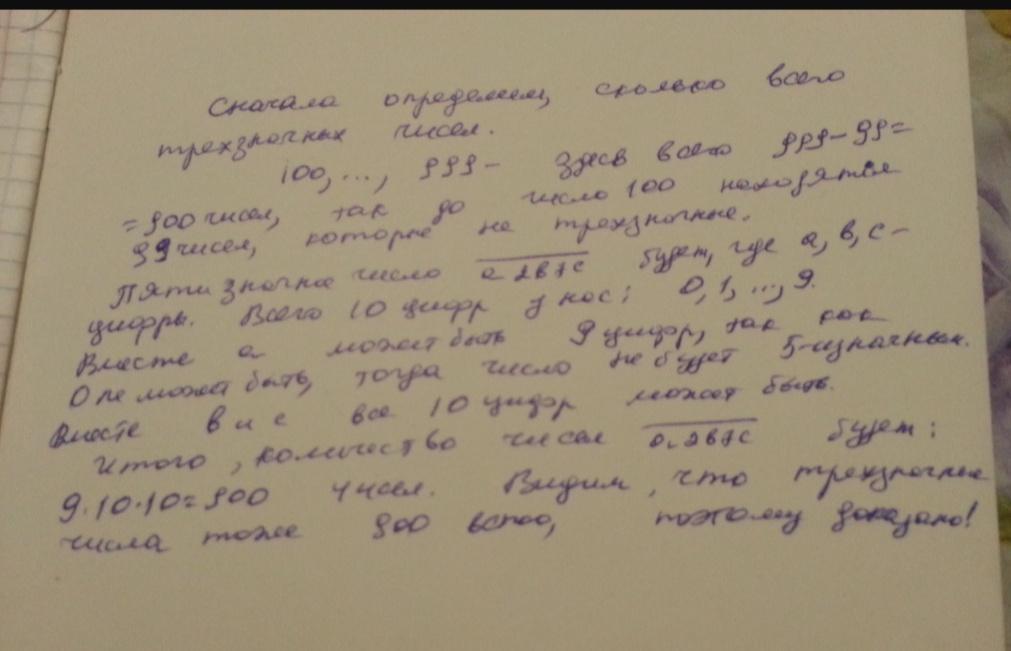 Сначала определим, сколько всего
трехзначных чисел.
100, ..., 999 - здесь всего 999-99=
=900 чисел, так до число 100 находятся
99 чисел, которые не трехзначные.
Пятизначное число a2b7c будет, где a, b, c -
цифры. Всего 10 цифр у нас: 0, 1, ..., 9.
Вместе a может быть 9 цифр, так как
0 не может быть, тогда число не будет 5-изначным.
Вместе b и c все 10 цифр может быть.
Итого, количество чисел a2b7c будет:
9·10·10=900 чисел. Видим, что трехзначные
числа тоже 900 всего, поэтому доказано!